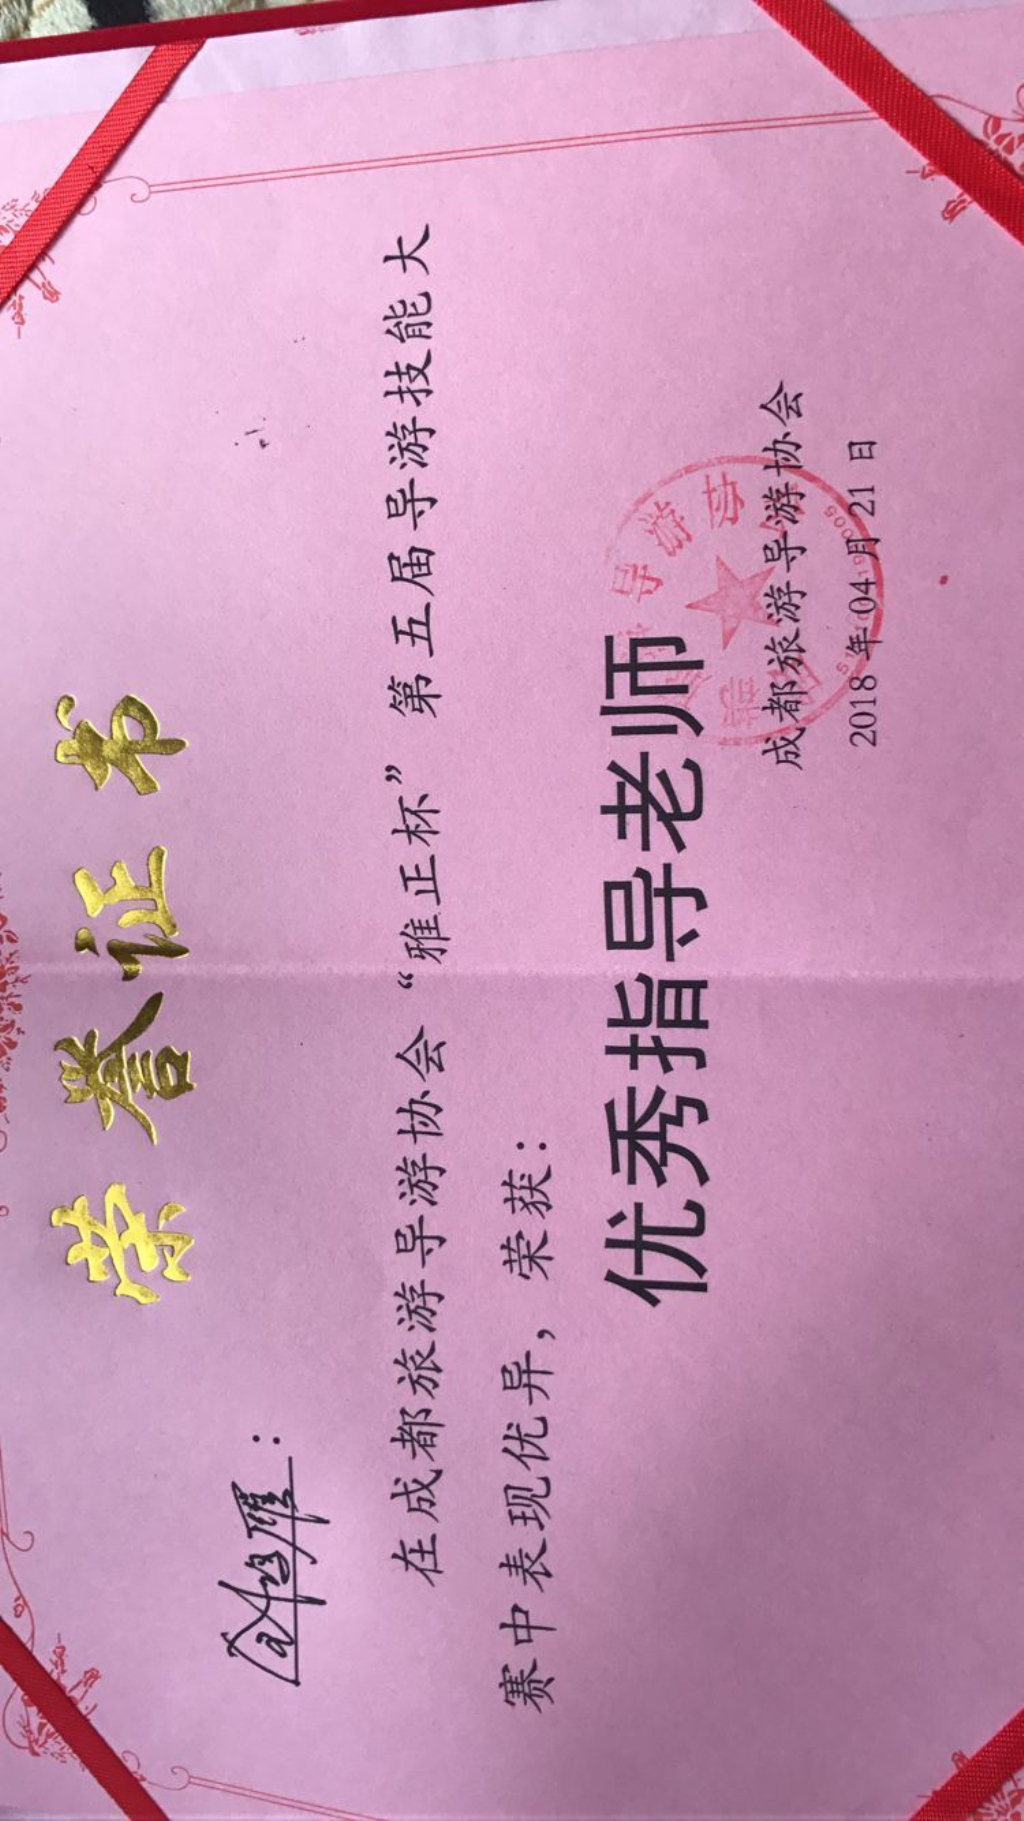 荣誉证书
：
在成都旅游导游协会“雅正杯”第五届导游技能大
赛中表现优异，荣获：
优秀指导老师
成都旅游导游协会
2018年04月21日
导游协